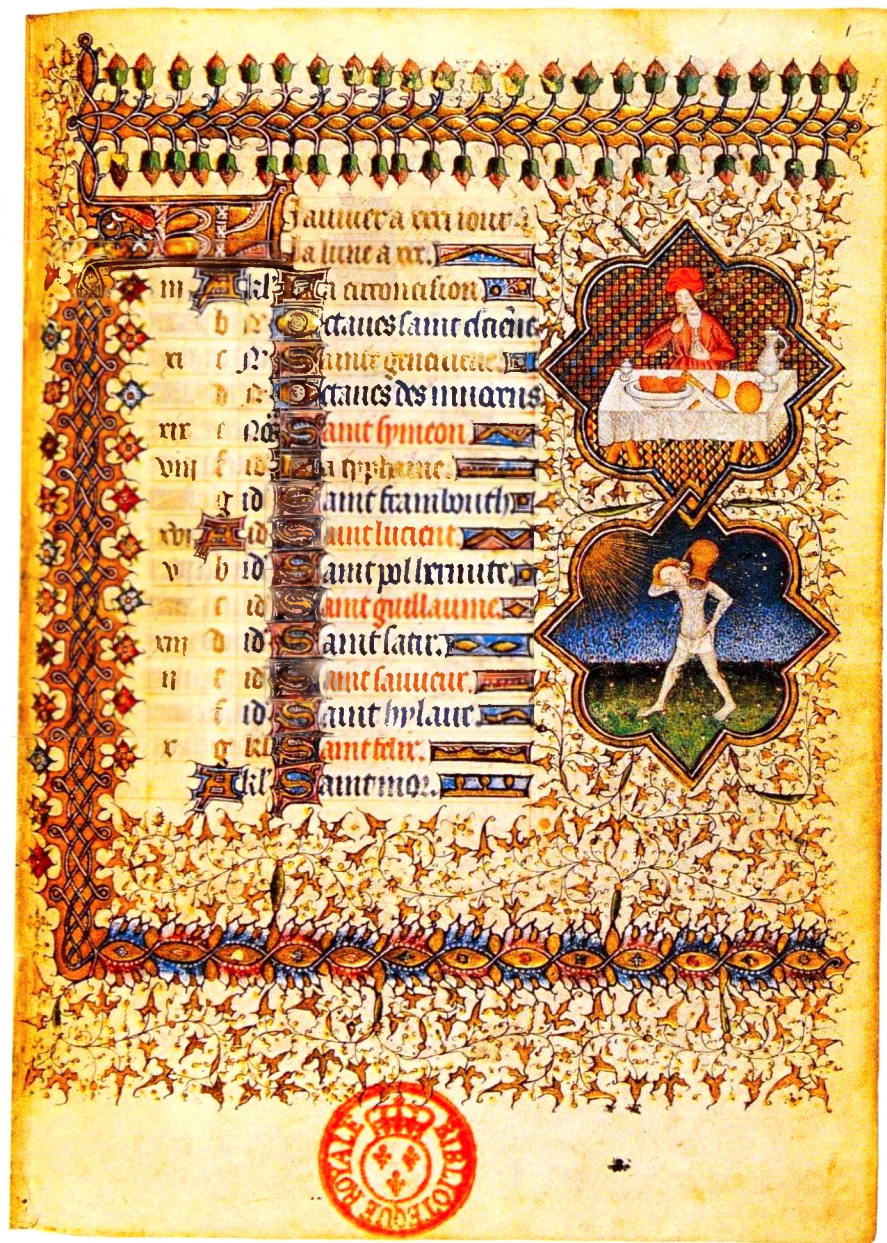 1
KL Januier a xxxi iour.
La lune a xxx.
iii A kl' La circoncision
b Octaues saint estiēne
xi c Sainte geneuieue
d Octaues des innocens
xix e Saint symeon
viii f id La typhaine
g id Saint frambouth
xvi A id Saint lucient
v b id Saint pol hermite
c id Saint guillaume
xiii d id Saint satir
ii e id Saint sauueur
f id Saint hylaire
x g kl Saint felix
A kl' Saint mor
BIBLIOTEQUE ROYALE